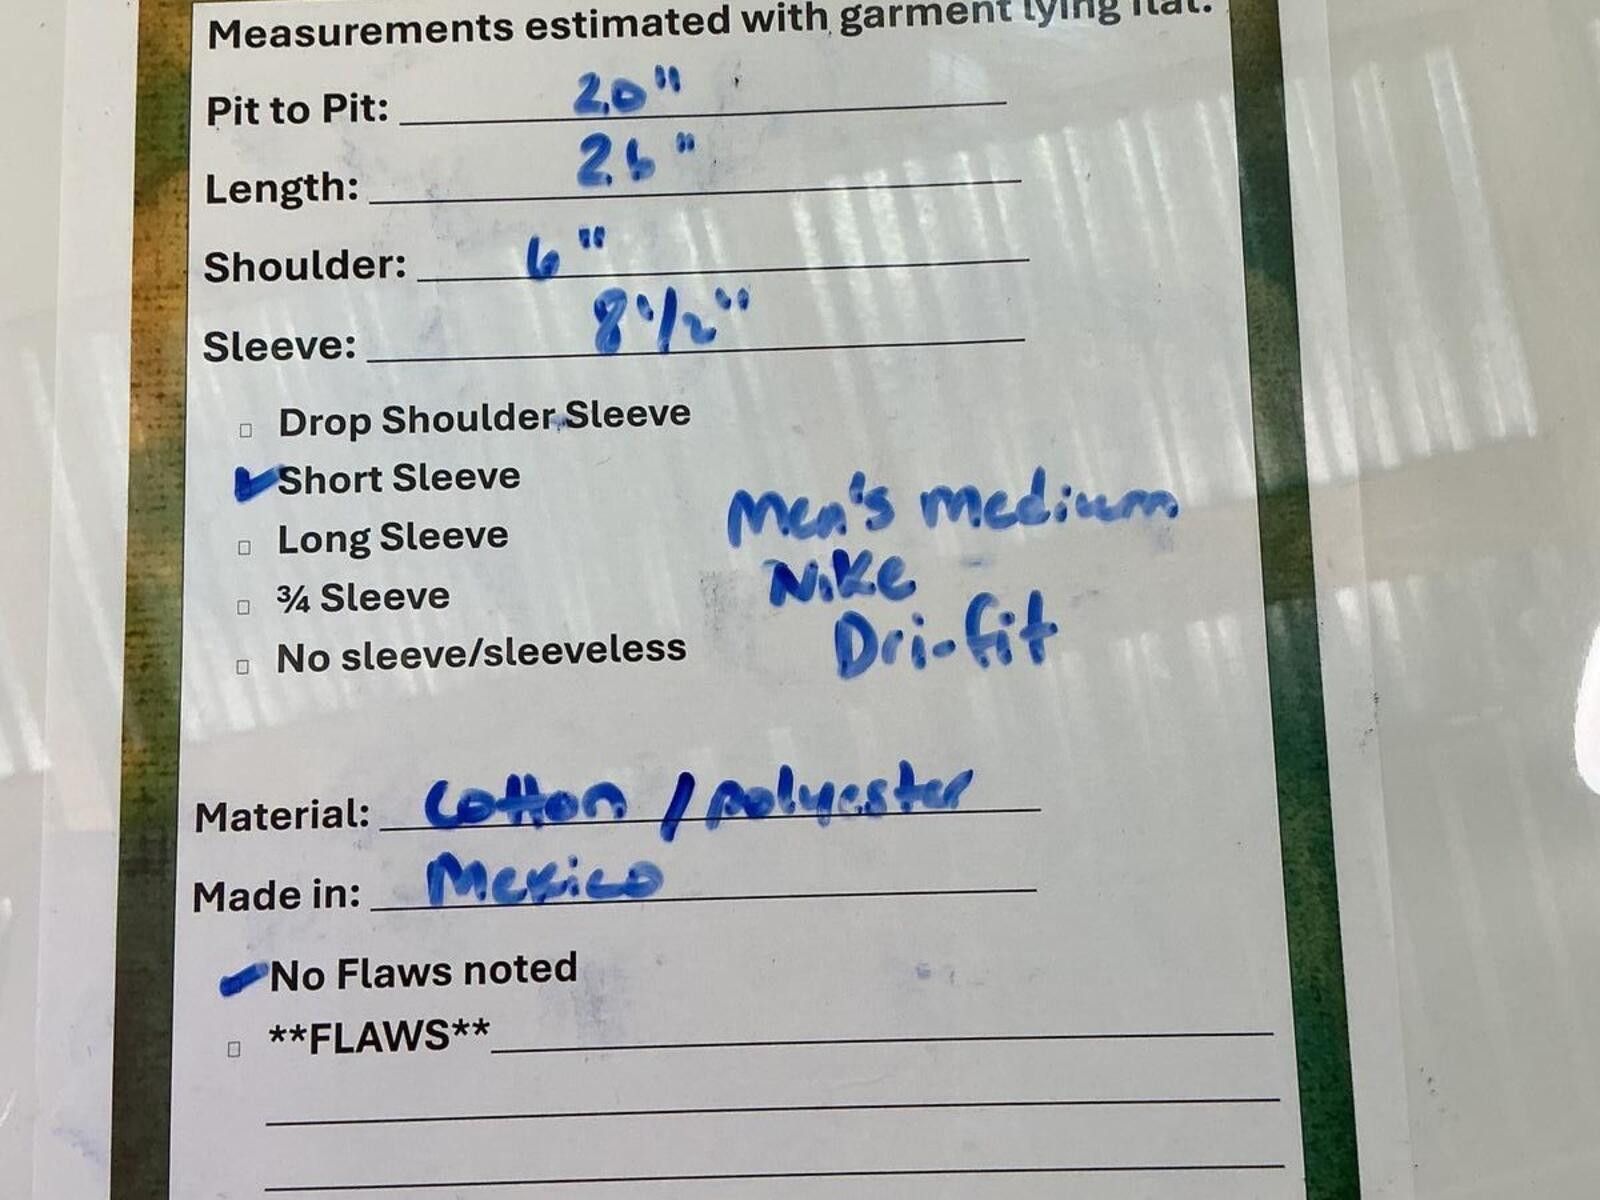 Measurements estimated with garment lying flat.
Pit to Pit: 20"
Length: 26"
Shoulder: 6"
Sleeve: 8 1/2"
Drop Shoulder Sleeve
Short Sleeve
Long Sleeve
¾ Sleeve
No sleeve/sleeveless
Men's medium
Nike
Dri-fit
Material: Cotton / polyester
Made in: Mexico
No Flaws noted
**FLAWS**